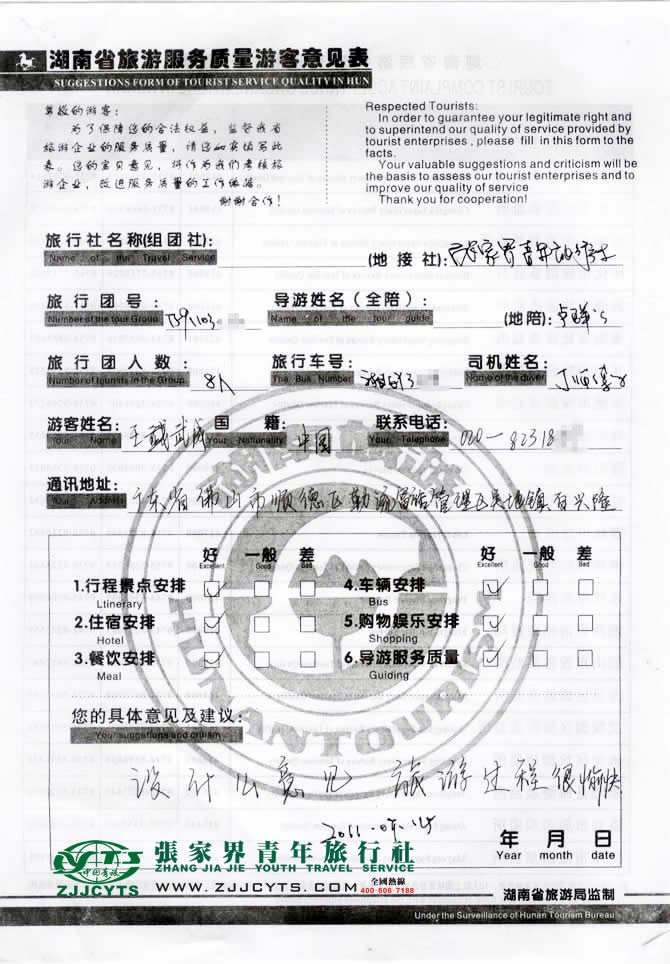 湖南省旅游服务质量游客意见表
SUGGESTIONS FORM OF TOURIST SERVICE QUALITY IN HUN
尊敬的游客：
为了保障您的合法权益，监督我省
旅游企业的服务质量，请您如实填写此
表。您的宝贝意见，将作为我们考核旅
游企业，改进服务质量的工作依据。
谢谢合作！
Respected Tourists:
In order to guarantee your legitimate right and
to superintend our quality of service provided by
tourist enterprises , please fill in this form to the
facts.
Your valuable suggestions and criticism will be
the basis to assess our tourist enterprises and to
improve our quality of service
Thank you for cooperation!
旅行社名称(组团社):
Name of the Travel Service
(地接社): 张家界青年旅行社
旅行团号：
Number of the tour Group
导游姓名（全陪）：
Name of the tour guide
(地陪):
旅行团人数：
Number of tourists in the Group 8人
旅行车号：
The Bus Number
司机姓名：
Name of the driver
游客姓名：
Your Name
国籍：
Your Nationality 中国
联系电话：
Your Telephone 020-82318
通讯地址：
Your Address 广东省佛山市顺德区勒流
好 一般 差
Excellent Good Bad
好 一般 差
Excellent Good Bad
1.行程景点安排
Ltinerary
4.车辆安排
Bus
2.住宿安排
Hotel
5.购物娱乐安排
Shopping
3.餐饮安排
Meal
6.导游服务质量
Guiding
您的具体意见及建议：
Your suggetions and critism
没什么意见 旅游过程很愉快
2011.09.14
年 月 日
Year month date
HUNAN TOURISM
CYTS
中国青旅
ZJJCYTS
張家界青年旅行社
ZHANG JIA JIE YOUTH TRAVEL SERVICE
WWW.ZJJCYTS.COM
全國熱線
400 606 7188
湖南省旅游局监制
Under the Surveillance of Hunan Tourism Bureau